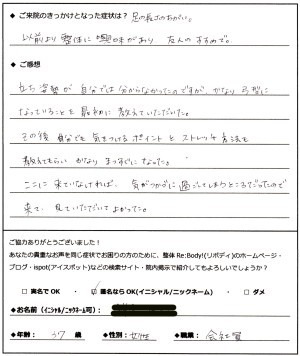 ◆ ご来院のきっかけとなった症状は？ 足の長さのちがい。
以前より整体に興味があり、友人のすすめで。
◆ ご感想
立ち姿勢が自分では分からなかったのですが、かなり弓型に
なっていることを最初に教えていただいた。
その後自分でも気をつけるポイントとストレッチ方法も
教えてもらい かなりまっすぐになった。
ここに来ていなければ、気がつかずに過ごしてしまうところだったので
来て、見ていただいてよかった。
ご協力ありがとうございました！
あなたの貴重なお声を同じ症状でお困りの方のために、整体 Re:Body!(リボディ)のホームページ・
ブログ・ispot(アイスポット)などの検索サイト・院内掲示で紹介してもよろしいでしょうか？
□ 実名で OK ・ ☑ 匿名なら OK(イニシャル/ニックネーム) ・ □ ダメ
◆お名前(イニシャル/ニックネーム可)：
◆年齢： 37 歳 ◆性別：女性 ◆職業： 会社員